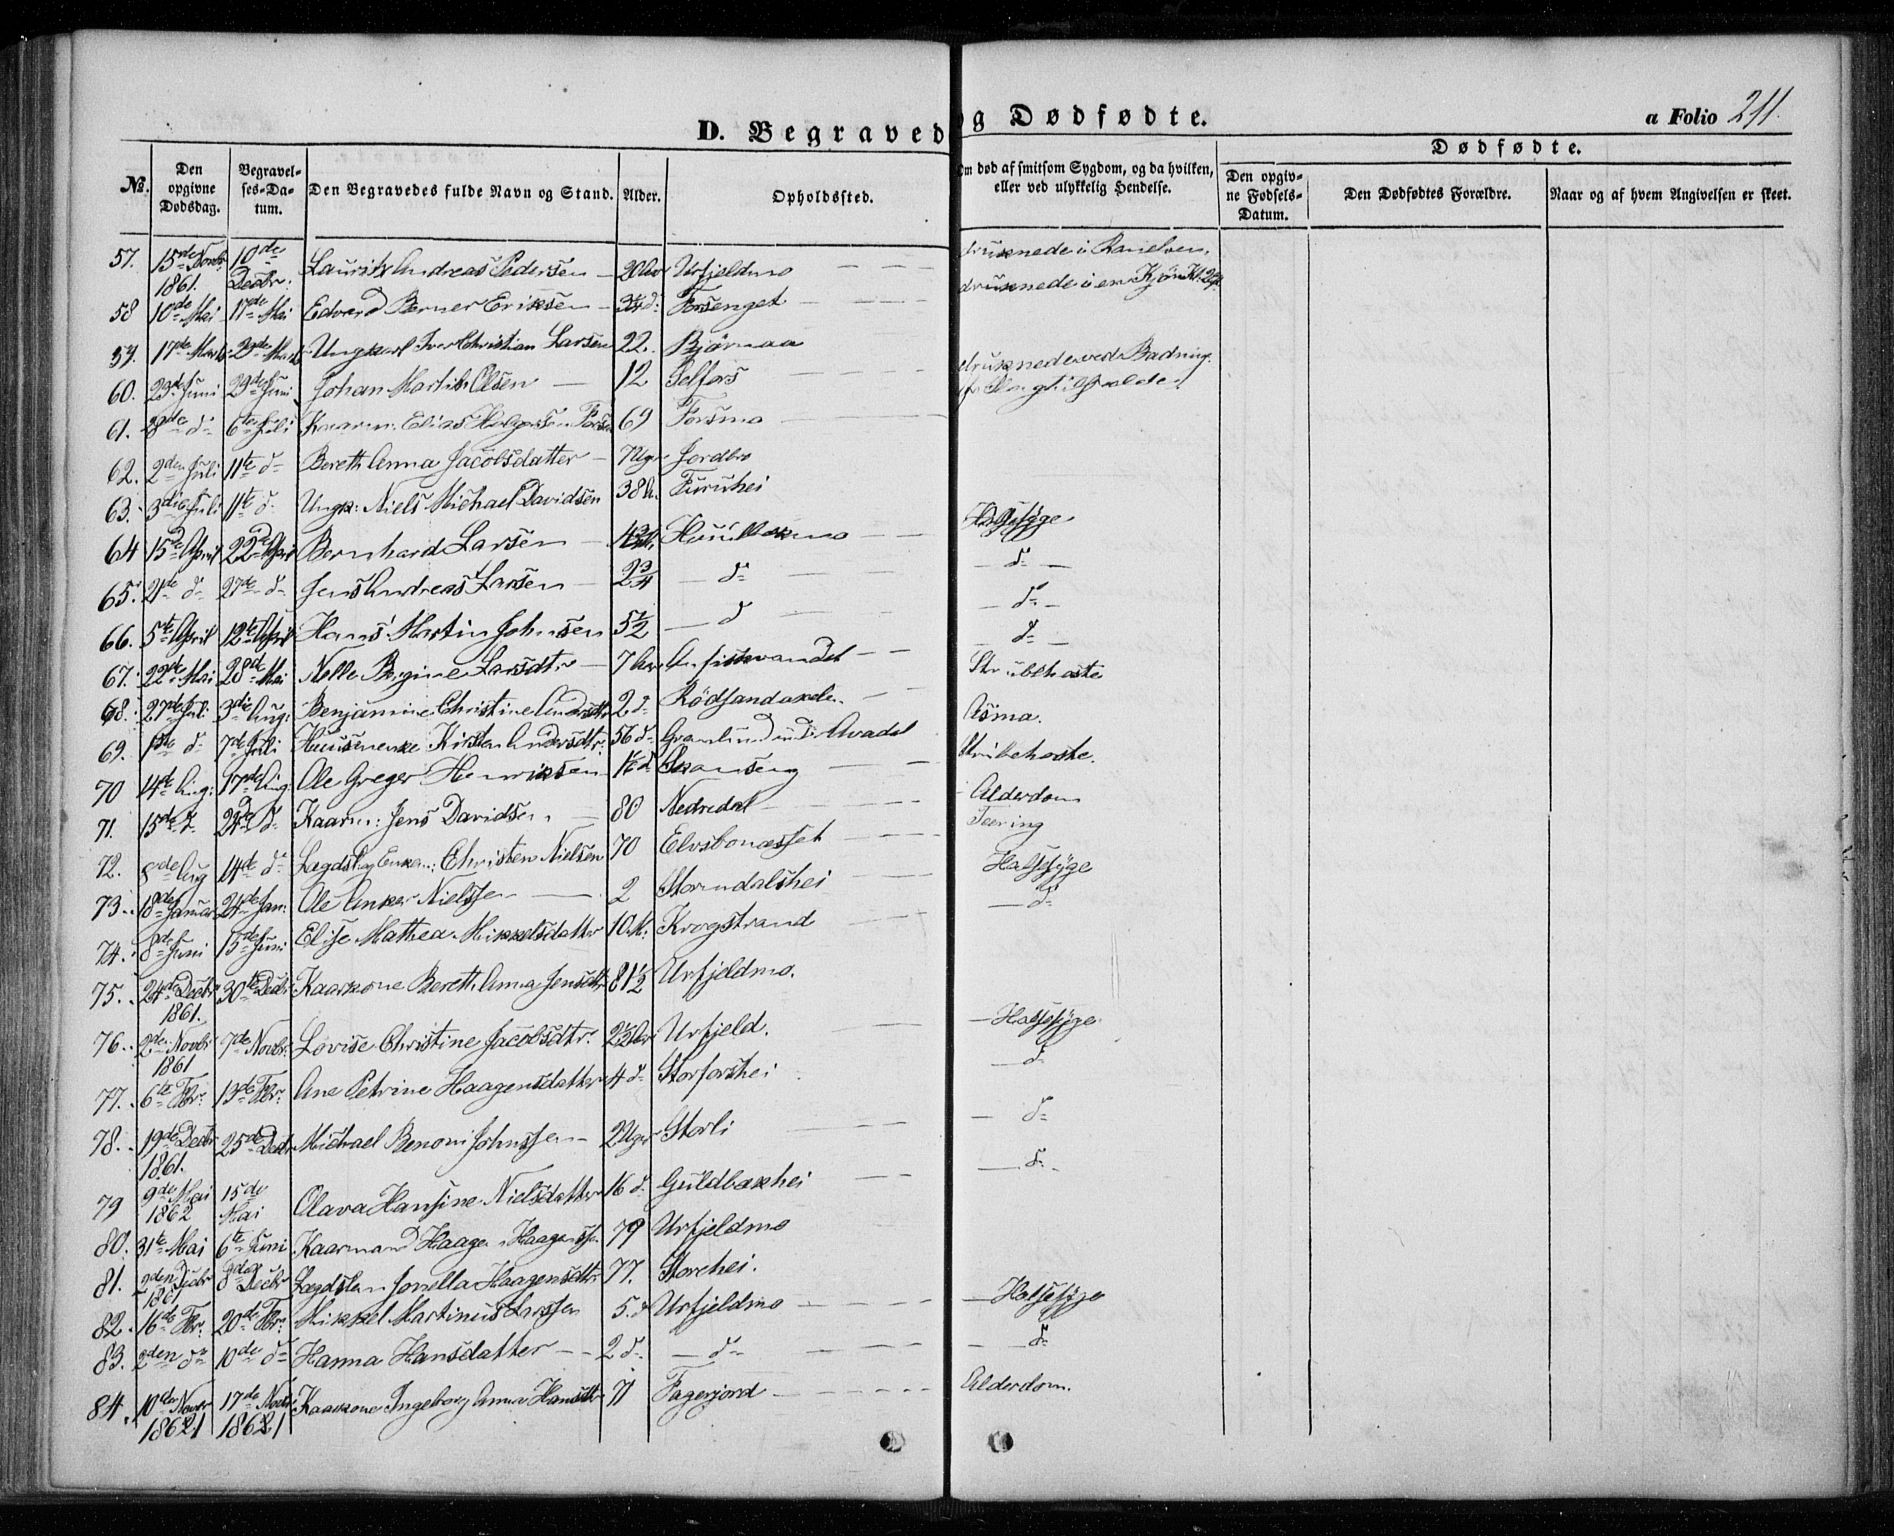 D. Begravede og Dødfødte.
a Folio 211.
No. Den opgivne Dødsdag. Begravelses-Datum. Den Begravedes fulde Navn og Stand. Alder. Opholdssted. Om død af smitsom Sygdom, og da hvilken, eller ved ulykkelig Hendelse. Dødfødte. Den opgivne Fødsels-Datum. Den Dødfødtes Forældre. Naar og af hvem Angivelsen er skeet.
57. 15de Novbr 1861. 10de Decbr: Lauritz Andreas Pedersen 20 Urfjeldmo druknede i Ranelven.
58 10de Mai 17de Mai Edvard Berner Eriksen Forsenget druknede i en
59. 17de Marts 23de Marts Ungkarl Iver Christian Larsen 22. Bjørnaa
60. 23de Juni 29de Juni Johan Martin Olsen 12 Selfors druknede ved Badning.
61. 28de d 6te Juli Kaarm: Elias Holgersen 69 Forsmo
62. 2den Juli 11te d Bereth Anna Jacobsdatter 7 Uger Jordbro
63. 3die Juli 11te d Ungk: Niels Michael Davidsen 38 A. Furuhei
64 15de April 22de April Bernhard Larsen Halssyge
65. 21de d 27de d Jens Andreas Larsen 2 3/4 d d
66. 5te April 12te April Hans Martin Johnsen 5 1/2 d d
67. 22de Mai 28de Mai Nelle Bergine Larsdtr 7 d
68. 27de Juli 3die Aug: Benjamine Christine Andersdtr 2 d Rödsandaxelen Strubehoste
69. d 7de Juli Kirsten Andersdtr: 56 d Granlund Asma.
70 14de Aug: 17de Aug: Ole Greger Henriksen Skanseng Strubehoste.
71. 15de d 24de d Kaarm: Jens Davidsen 80 Nedredal Alderdom
72. 8de Aug 14de d Christen Nielsen 70 Elvsbonæsset Tæring
73. 18de Januar 24de Jan: Ole Anker Nielssen 2 Stormdalshei Halssyge
74. 8de Juni 15de Juni Elise Mathea Mikkelsdatter 10 M. Krogstrand d
75. 24de Decbr 1861. 30te Decbr Kaarkone Bereth Anna Jensdtr 81 1/2 Urfjeldmo.
76. 2de Novbr 1861 7de Novbr: Lovise Christine Jacobsdtr: 2 1/2 Urfjeld. Halssyge
77. 6te Fbr: 13de Fbr: Ane Petrine Haagensdatter 4 d Storforshei d
78. 19de Decbr 1861. 25de Decbr Michael Benoni Johnssen 2 Uger Storli d
79 9de Mai 1862 15de Mai Olava Hansine Nielsdatter 16 d Guldbakhei d
80. 31te Mai 6te Juni Kaarmand Haagen Haagenssen 79 Urfjeldmo
81. 2den Decbr 1861 8de Decbr Lægdslem Jonella Haagensdtr 77. Storehei.
82. 16de Fbr: 20de Fbr: Mikkel Martinus Larssen 5. d Urfjeldmo Halssyge
83. 2den d 10de d Hanna Hansdatter 2 d d d
84. 10de Novbr 1861 17de Novbr 1861 Kaarkone Ingeborg Anna Hansdtr 71 Fagerjord Alderdom.